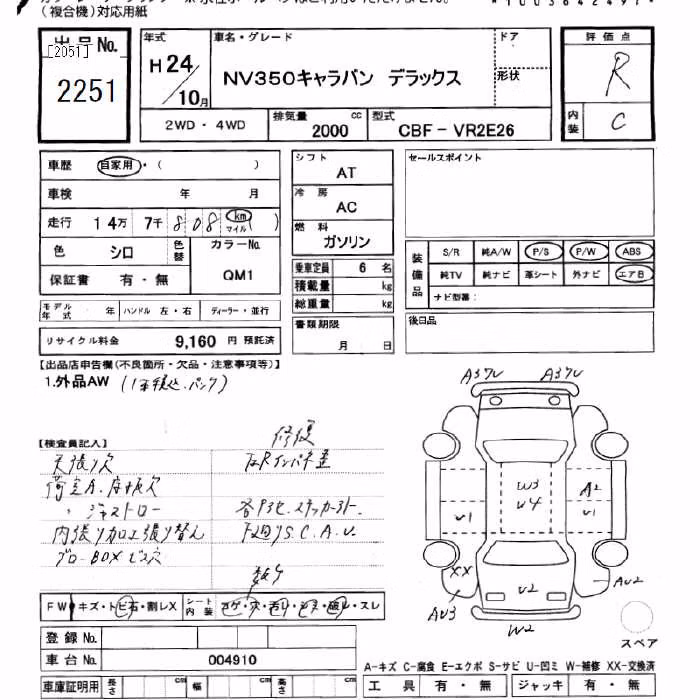 (複合機)対応用紙
出品No.
[2051]
2251
年式
H24/10月
車名・グレード
NV350キャラバン デラックス
ドア
形状
評価点
R
内装
C
2WD・4WD
排気量
2000 cc
型式
CBF-VR2E26
車歴 自家用・( )
車検 年 月
走行 14万 7千 808 km マイル ( )
色 シロ
色替
カラーNo.
QM1
保証書 有・無
モデル年式 年 ハンドル 左・右 ディーラー・並行
リサイクル料金 9,160 円 預託済
シフト
AT
冷房
AC
燃料
ガソリン
乗車定員 6 名
積載量 kg
総重量 kg
書類期限
月 日
セールスポイント
装備品
S/R 純A/W P/S P/W ABS
純TV 純ナビ 革シート 外ナビ エアB
ナビ型番:
後日品
【出品店申告欄(不良箇所・欠品・注意事項等)】
1.外品AW
【検査員記入】
修復
天張り穴
内張り加工張り替え
FW キズ・トビ石・割レX
シート内装 コゲ・穴・汚レ・シミ・破レ・スレ
登録No.
車台No. 004910
車庫証明用 長さ cm 幅 cm 高さ cm
A37V A37V
W3
U4
A2
U1
U1
XX
U2
AU3
AU2
W2
スペア
A-キズ C-腐食 E-エクボ S-サビ U-凹ミ W-補修 XX-交換済
工具 有・無 ジャッキ 有・無